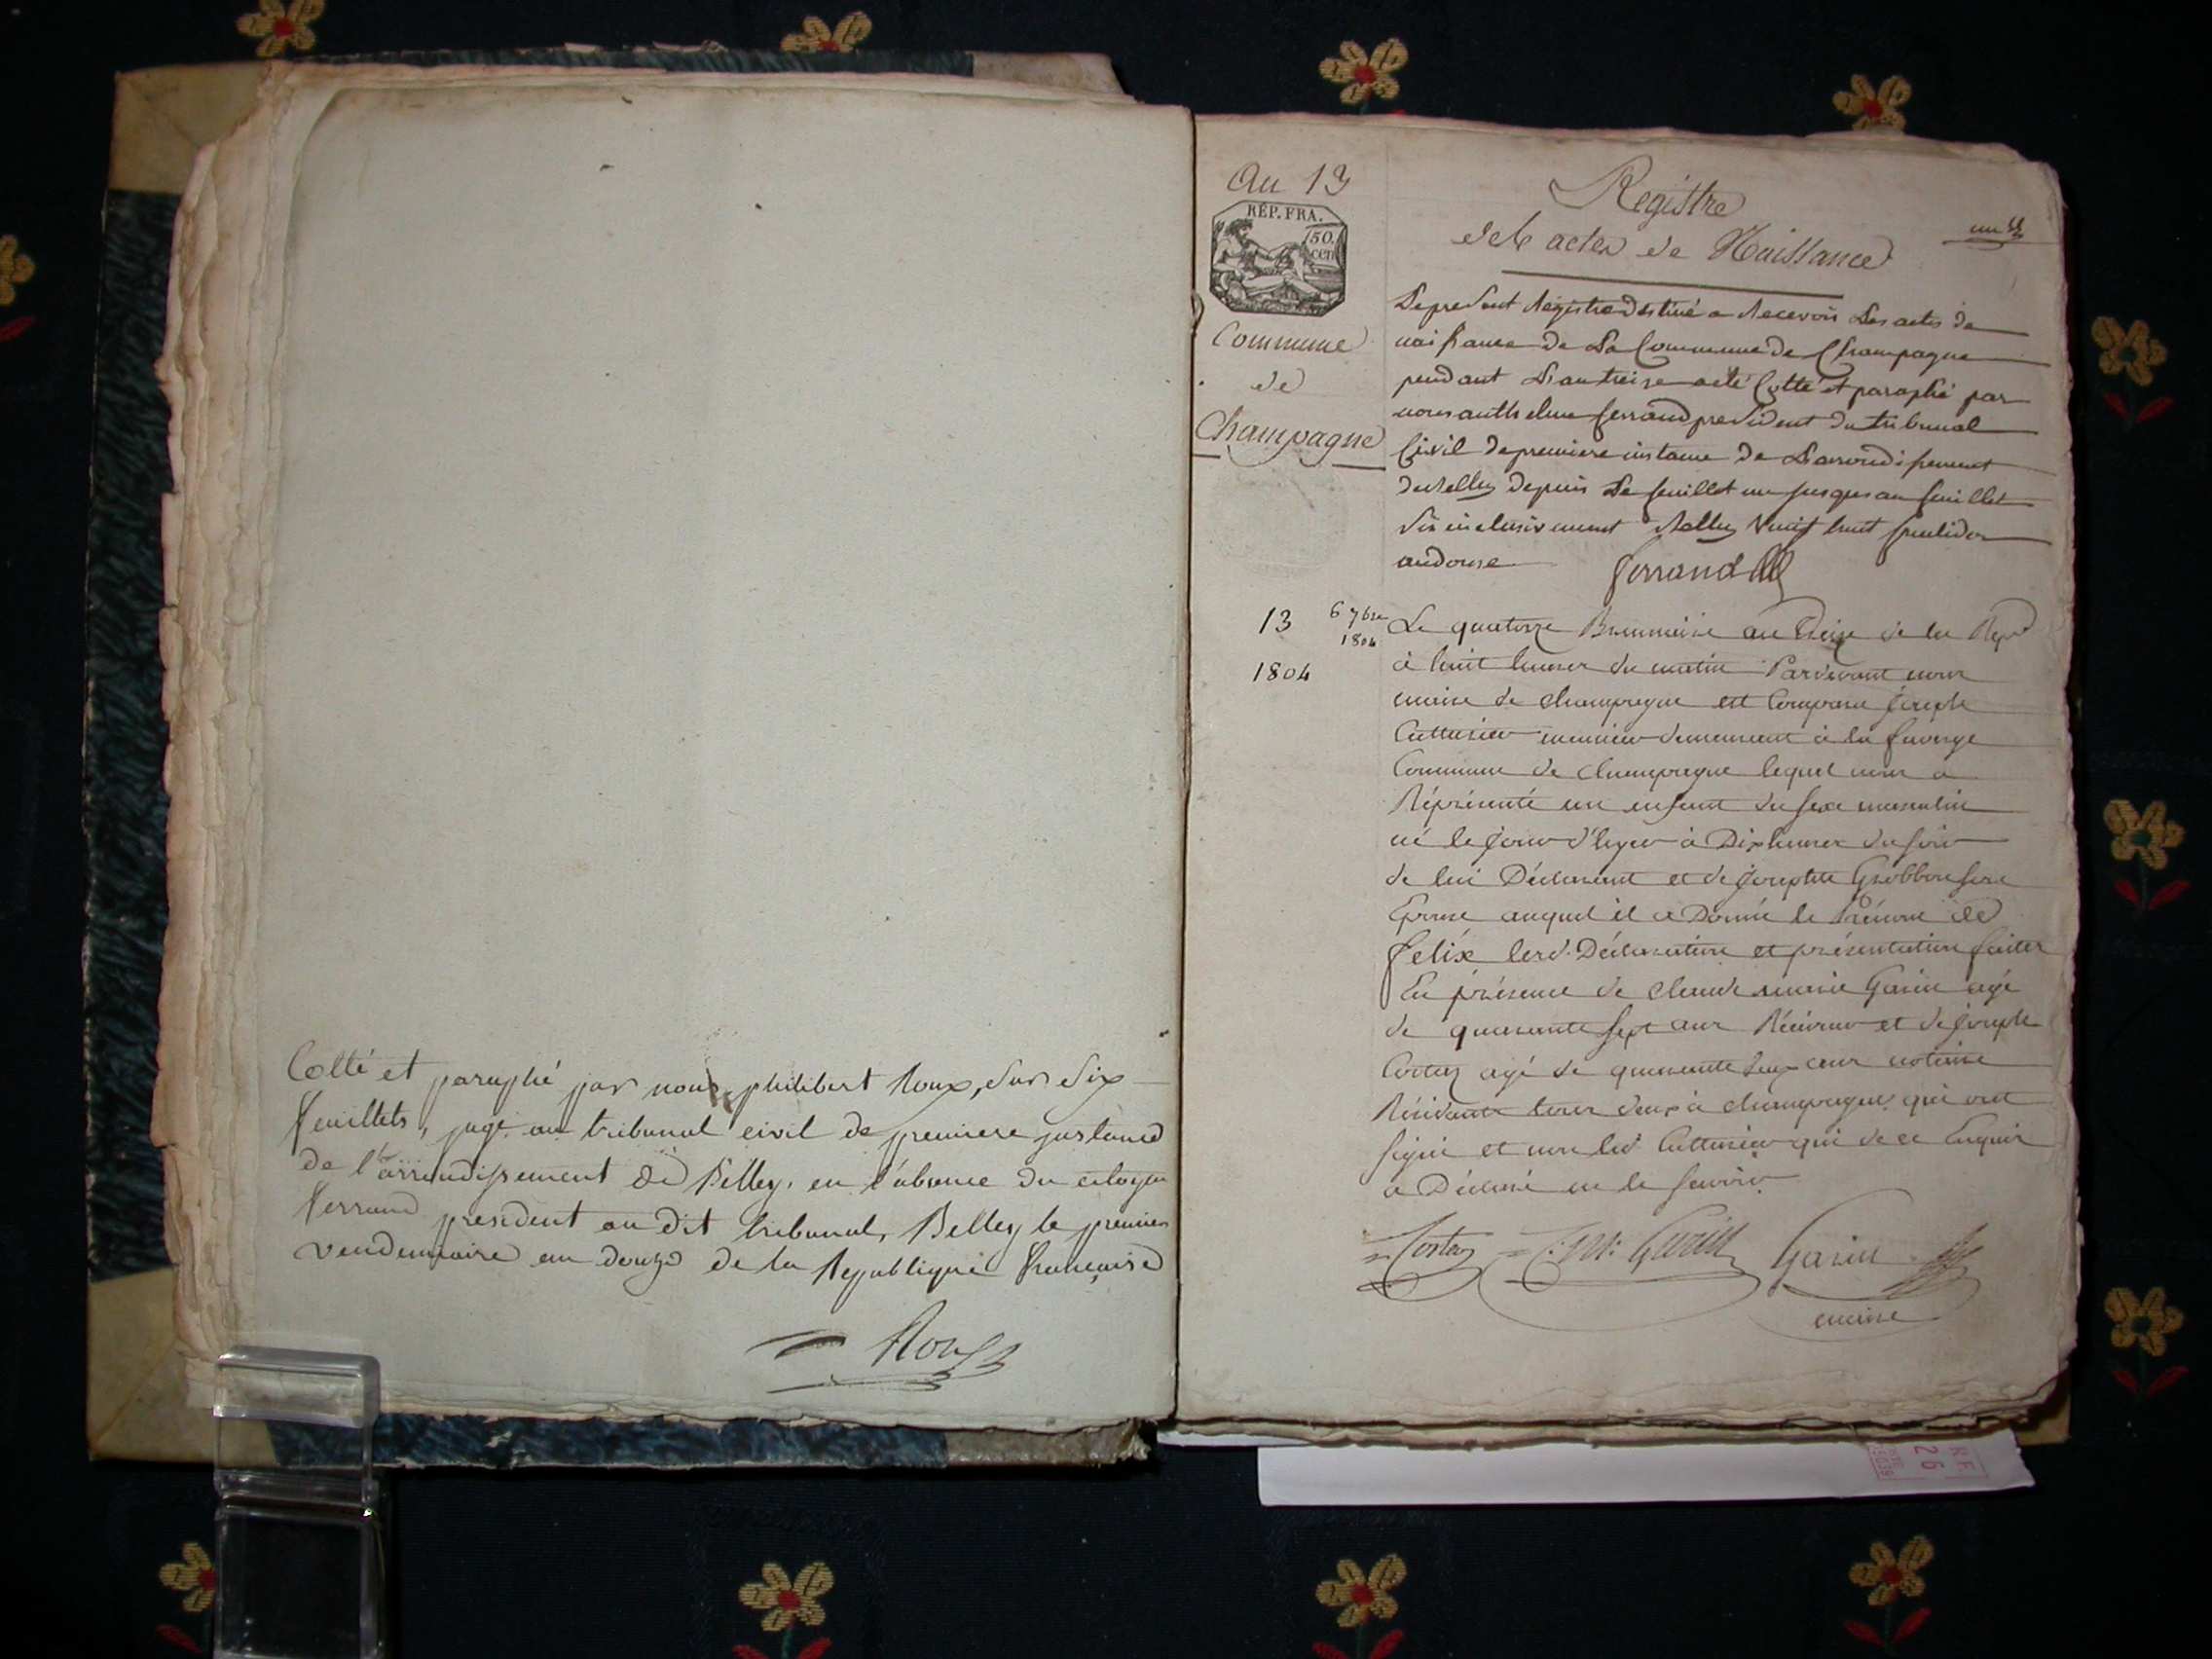 Cotté et paraphé par nous, philibert Roux, sur six
feuillets, juge au tribunal civil de premiere instance
de l'arrondissement de Belley, en l'absence du citoyen
ferrand president au dit tribunal, Belley le premier
vendemiaire an douze de la Republique francaise
Roux
An 13
RÉP. FRA.
50.
cen
Commune
de
Champagne
Registre
des actes de Naissance
un
Le present Registre destiné a Recevoir Les actes de
naissance de La Commune de Champagne
pendant L'an treize a été Cotté et paraphé par
nous anthelme ferrand president du tribunal
Civil de premiere instance de L'arrondissement
de Belley depuis Le feuillet un jusques au feuillet
six inclusivement Belley Vingt huit fructidor
an douze
ferrand
13
6 9bre
1804
1804
Le quatorze Brumaire an treize de la Repq
à huit heures du matin Pardevant nous
maire de champagne est Comparu Joseph
meunier demeurant à la faverge
Commune de champagne lequel nous a
Réprésenté un enfant du sexe masculin
né le jour d'hyer à Dix heures du soir
de lui Déclarant et de Josephte son
Epouse auquel il a Donné le Prénom de
felix lesd. Déclaration et présentation faites
En présence de claude marie Garin agé
de quarante sept ans Réceveur et de Joseph
Costaz agé de quarante ans notaire
Résidants tous deux à champagne qui ont
signé et non led qui de ce Enquis
a Déclaré ne le savoir
Costaz C: M: Garin Garin
maire
R.F.
26